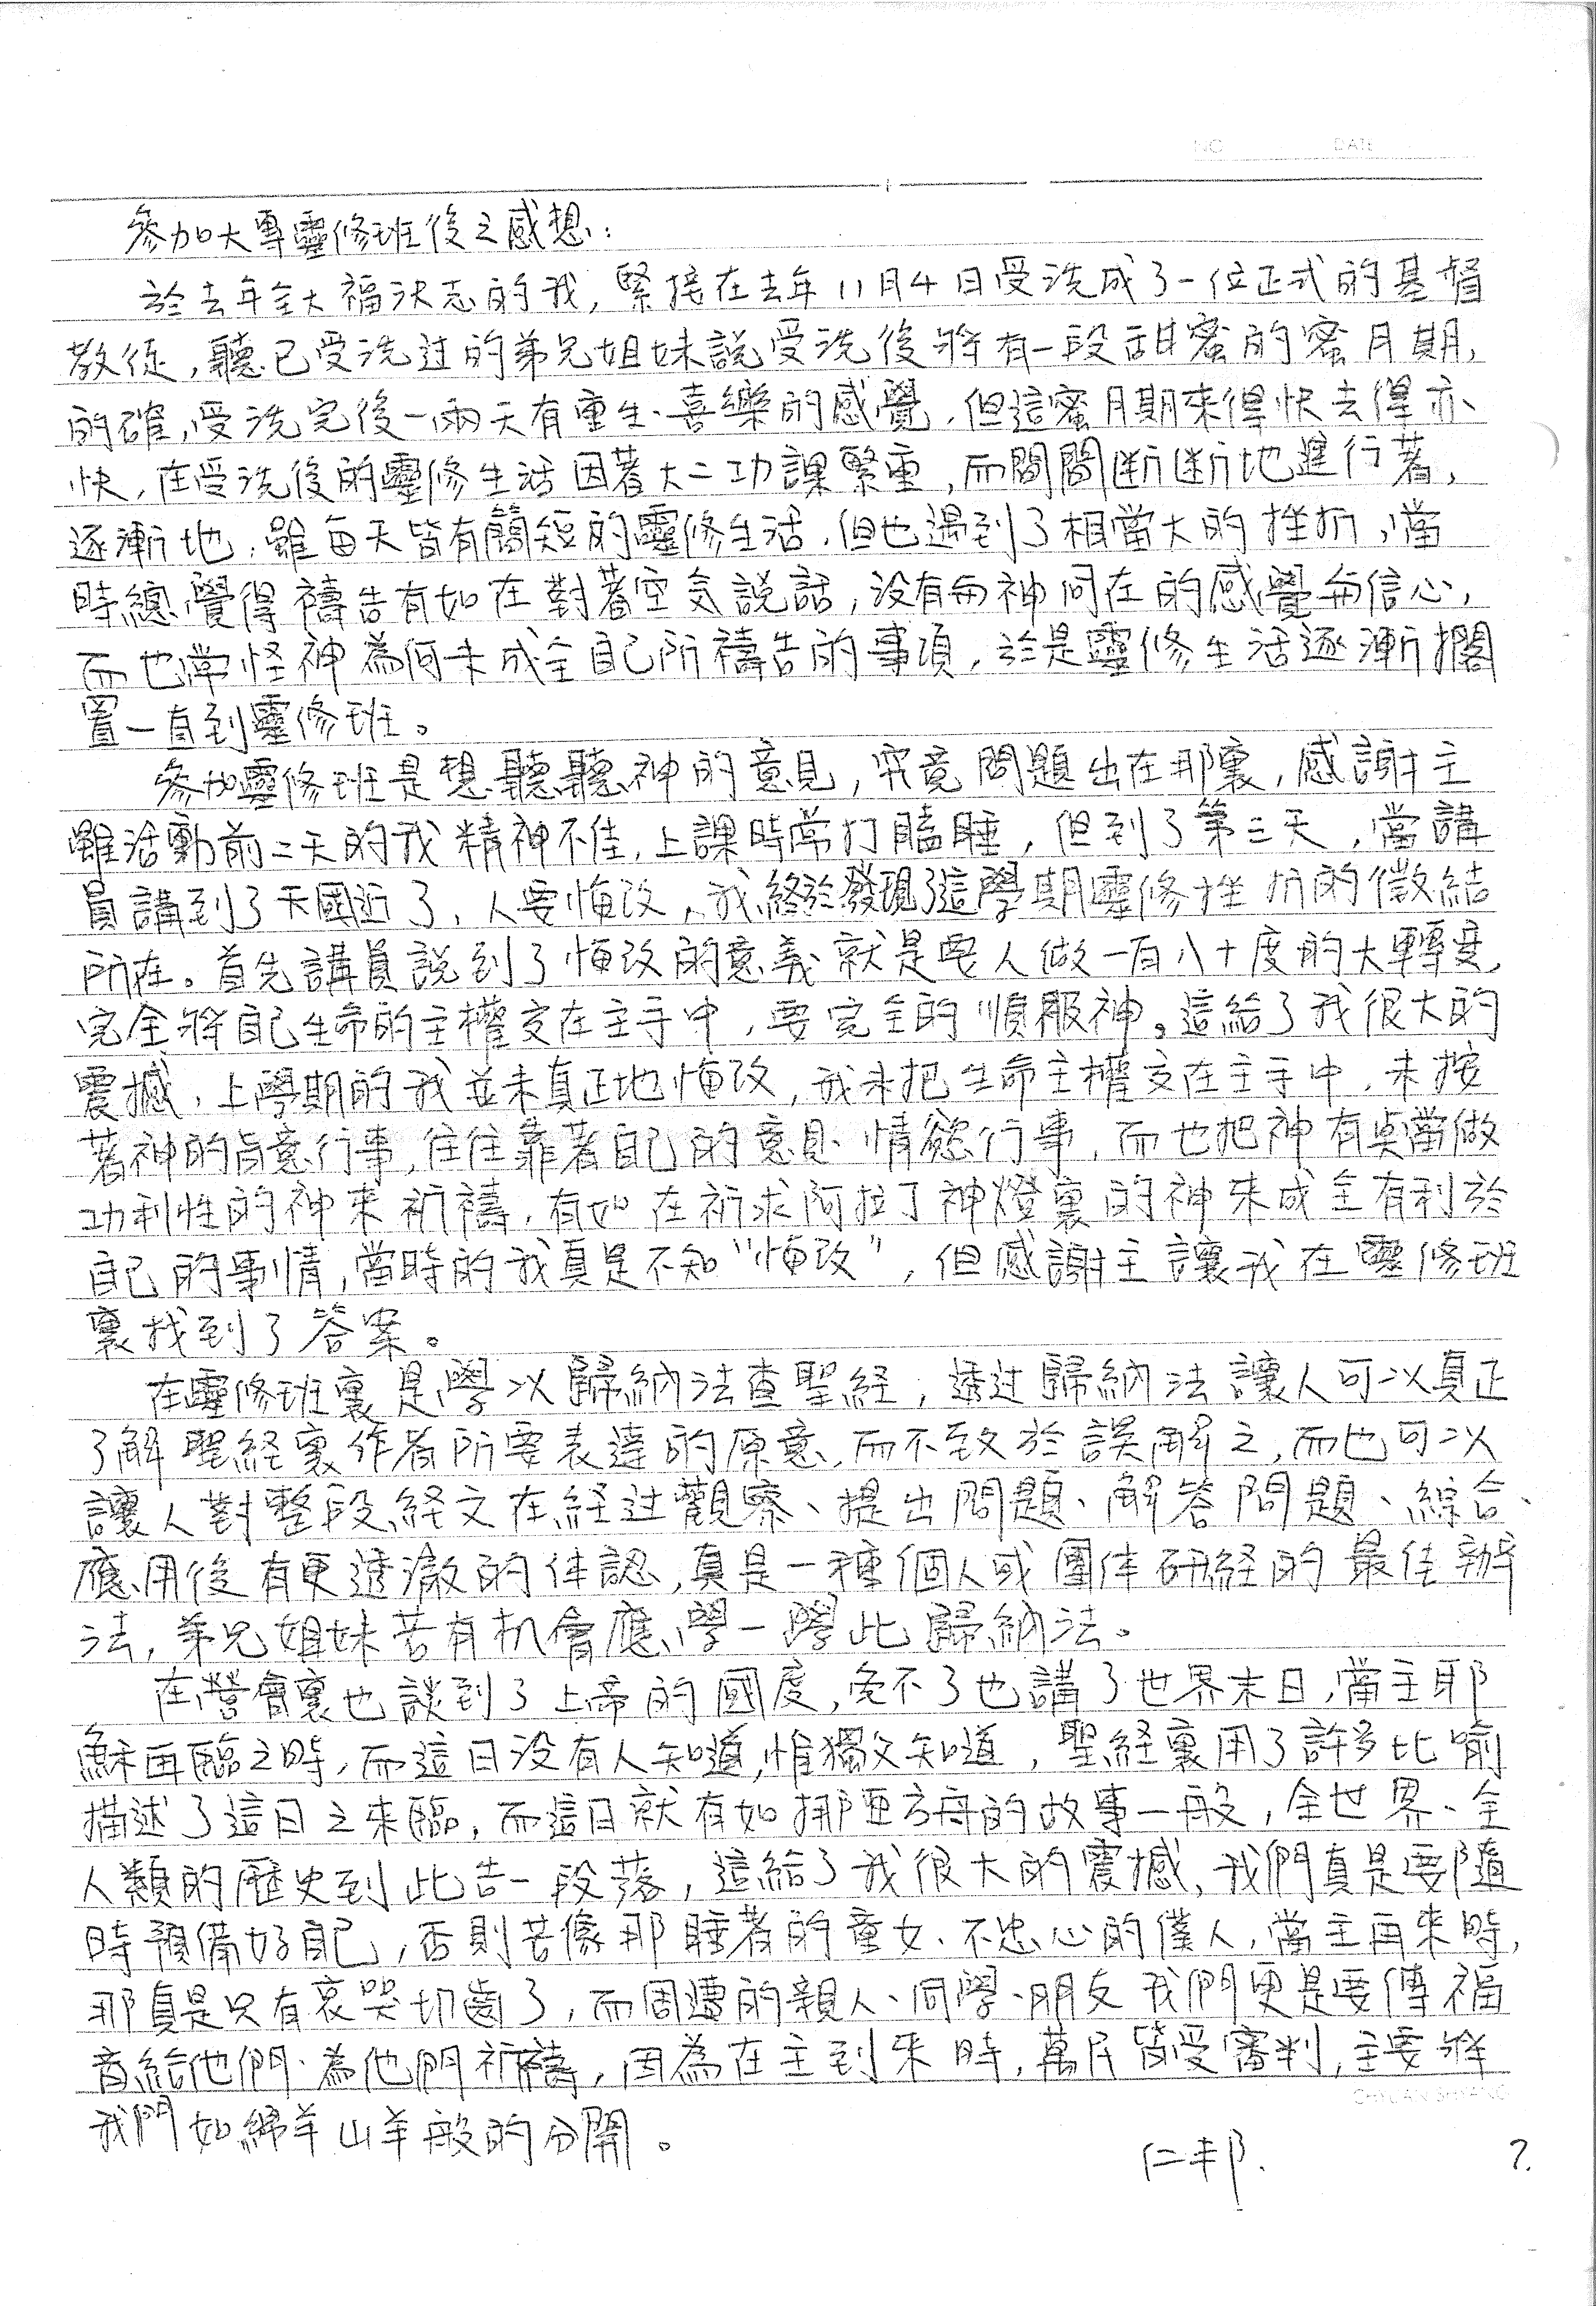 NO. DATE
參加大專靈修班後之感想：
於去年全大福決志的我，緊接在去年11月4日受洗成了一位正式的基督
教徒，聽已受洗过的弟兄姐妹說受洗後將有一段甜蜜的蜜月期，
的確，受洗完後一兩天有重生、喜樂的感覺，但這蜜月期來得快去得亦
快，在受洗後的靈修生活因著大二功課緊重，而間間斷斷地進行著，
逐漸地，雖每天皆有簡短的靈修生活，但也遇到了相當大的挫折，當
時總覺得禱告有如在對著空気說話，沒有与神同在的感覺与信心，
而也常怪神為何未成全自己所禱告的事項，於是靈修生活逐漸擱
置一直到靈修班。
參加靈修班是想聽聽神的意見，究竟問題出在那裏，感謝主
雖活動前二天的我精神不佳，上課時常打瞌睡，但到了第三天，當講
員講到了天國近了，人要悔改，我終於發現了這學期靈修挫折的徵結
所在。首先講員說到了悔改的意義就是要人做一百八十度的大轉变，
完全將自己生命的主權交在主手中，要完全的順服神。這給了我很大的
震撼，上學期的我並未真正地悔改，我未把生命主權交在主手中，未按
著神的旨意行事，往往靠著自己的意見、情慾行事，而也把神有桌當做
功利性的神來祈禱，有如在祈求阿拉丁神燈裏的神來成全有利於
自己的事情，當時的我真是不知“悔改”，但感謝主讓我在靈修班
裏找到了答案。
在靈修班裏是學以歸納法查聖経，透过歸納法讓人可以真正
了解聖経裏作者所要表達的原意，而不致於誤解之，而也可以
讓人對整段経文在経过觀察、提出問題、解答問題、綜合、
應用後有更透澈的体認，真是一種個人或團体研経的最佳辦
法，弟兄姐妹若有机會應學一學此歸納法。
在營會裏也談到了上帝的國度，免不了也講了世界末日，當主耶
穌再臨之時，而這日沒有人知道，惟獨父知道，聖経裏用了許多比喻
描述了這日之來臨，而這日就有如挪亞方舟的故事一般，全世界、全
人類的歷史到此告一段落，這給了我很大的震撼，我們真是要隨
時預備好自己，否則若像那睡著的童女、不忠心的僕人，當主再來時，
那真是只有哀哭切齒了，而周遭的親人、同學、朋友我們更是要傳福
音給他們、為他們祈禱，因為在主到來時，萬民皆受審判，主要將
我們如綿羊山羊般的分開。
仁邦. 7.
CHYUAN SHYANG